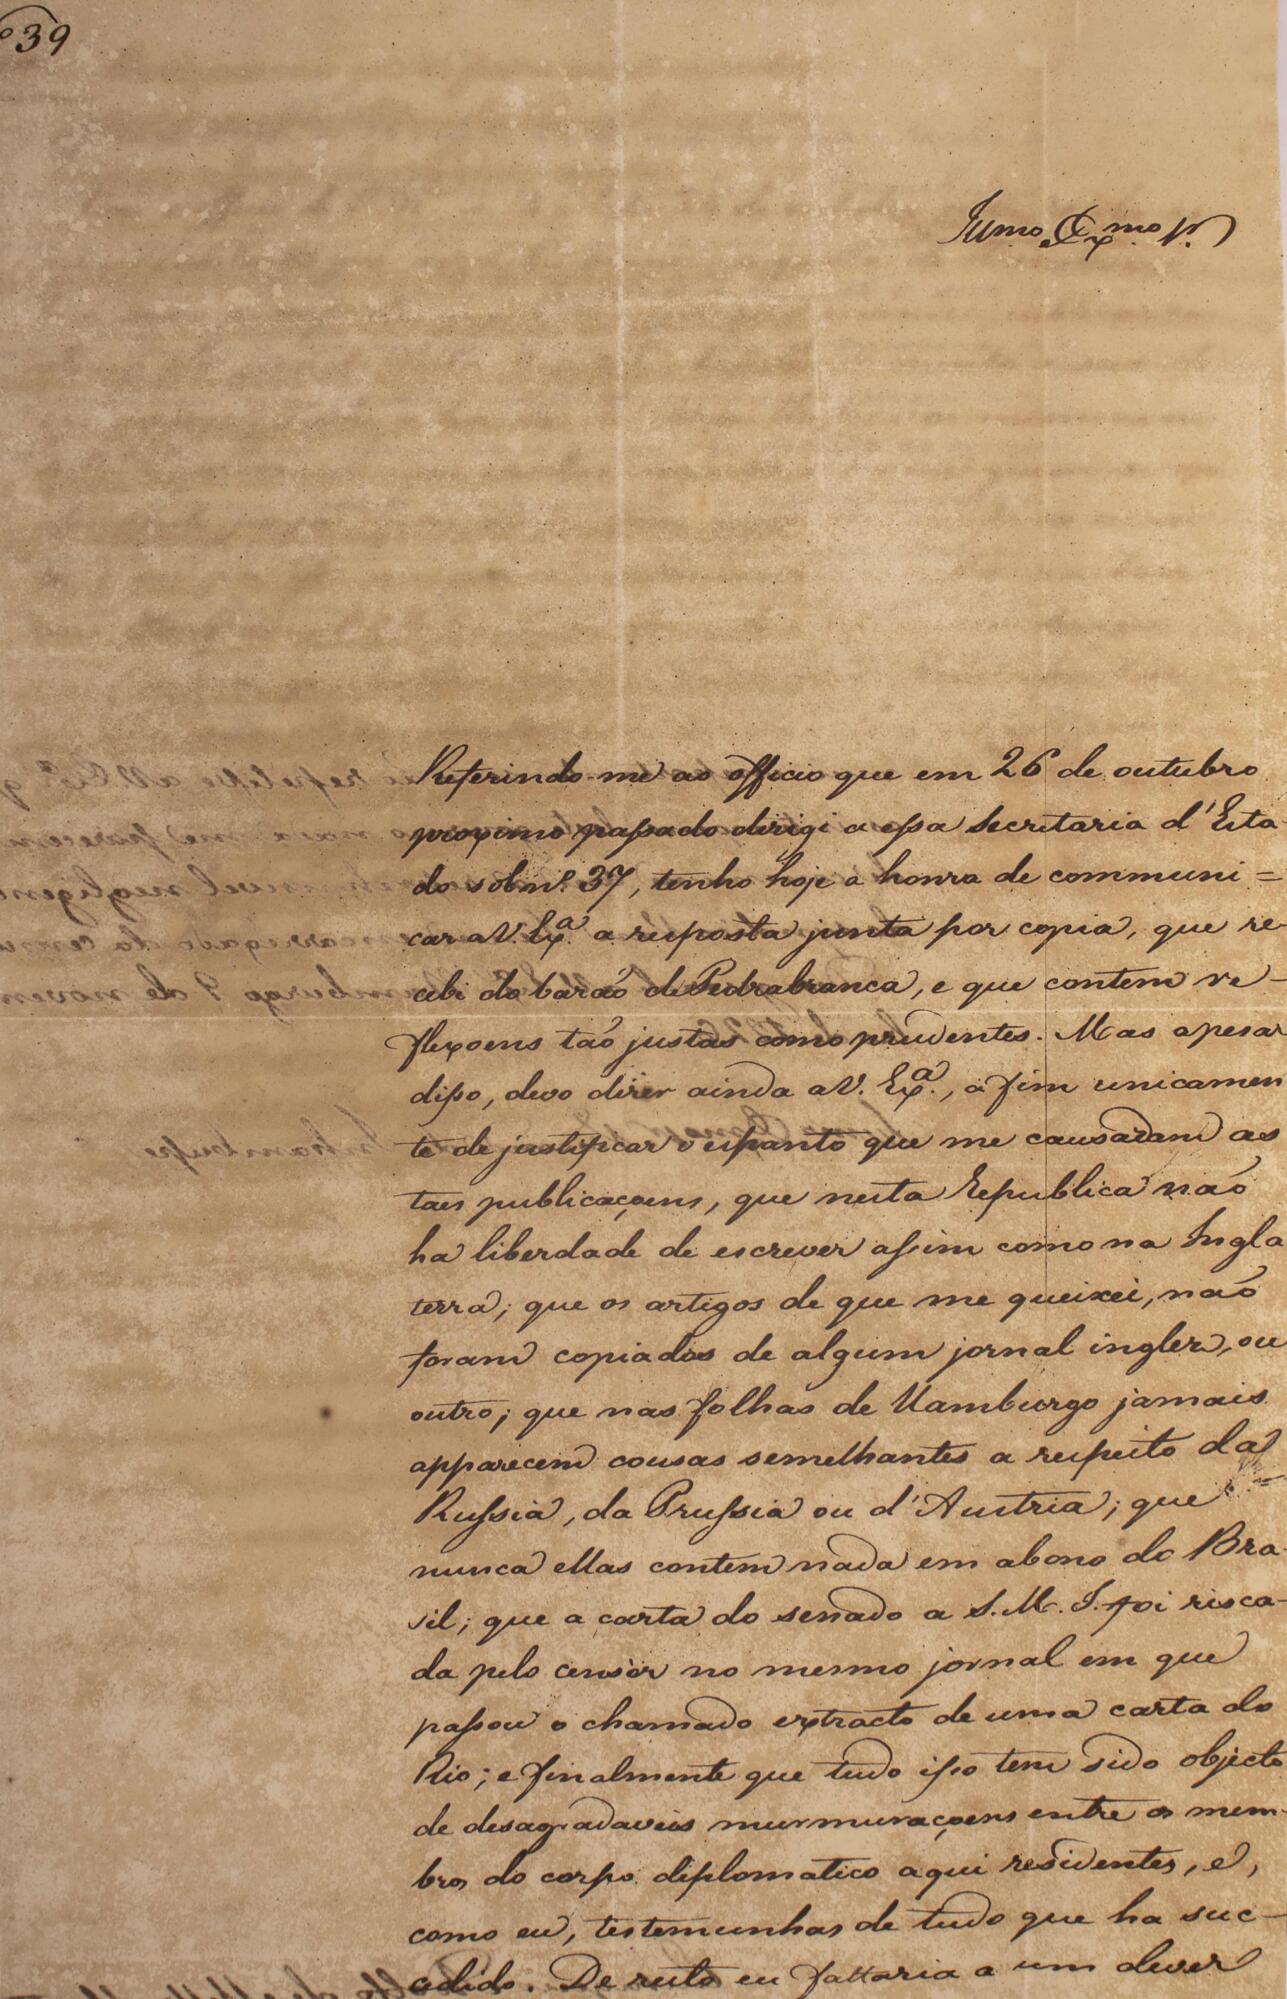 º 39
Illmo. Exmo. Sr.
Referindo-me ao officio que em 26 de outubro
proximo passado dirigi a essa Secretaria d'Esta
do sob nº. 37, tenho hoje a honra de communi=
car a V. Exª. a resposta junta por copia, que re
cebi do barão de Pedrabranca, e que contem re-
flexoens tão justas como prudentes. Mas apesar
disso, devo dizer ainda a V. Exª., a fim unicamen
te de justificar o espanto que me causaram as
taes publicaçoens, que nesta Republica não
ha liberdade de escrever assim como na Ingla
terra; que os artigos de que me queixei, não
foram copiados de algum jornal inglez, ou
outro; que nas folhas de Hamburgo jamais
apparecem cousas semelhantes a respeito da
Russia, da Prussia ou d'Austria; que
nunca ellas contem nada em abono do Bra-
sil; que a carta do senado a S. M. I. foi risca-
da pelo censor no mesmo jornal em que
passou o chamado extracto de uma carta do
Rio; e finalmente que tudo isso tem sido objecto
de desagradaveis murmuraçoens entre os mem-
bros do corpo diplomatico aqui residentes, e,
como eu, testemunhas de tudo que ha suc-
cedido. De resto eu faltaria a um dever